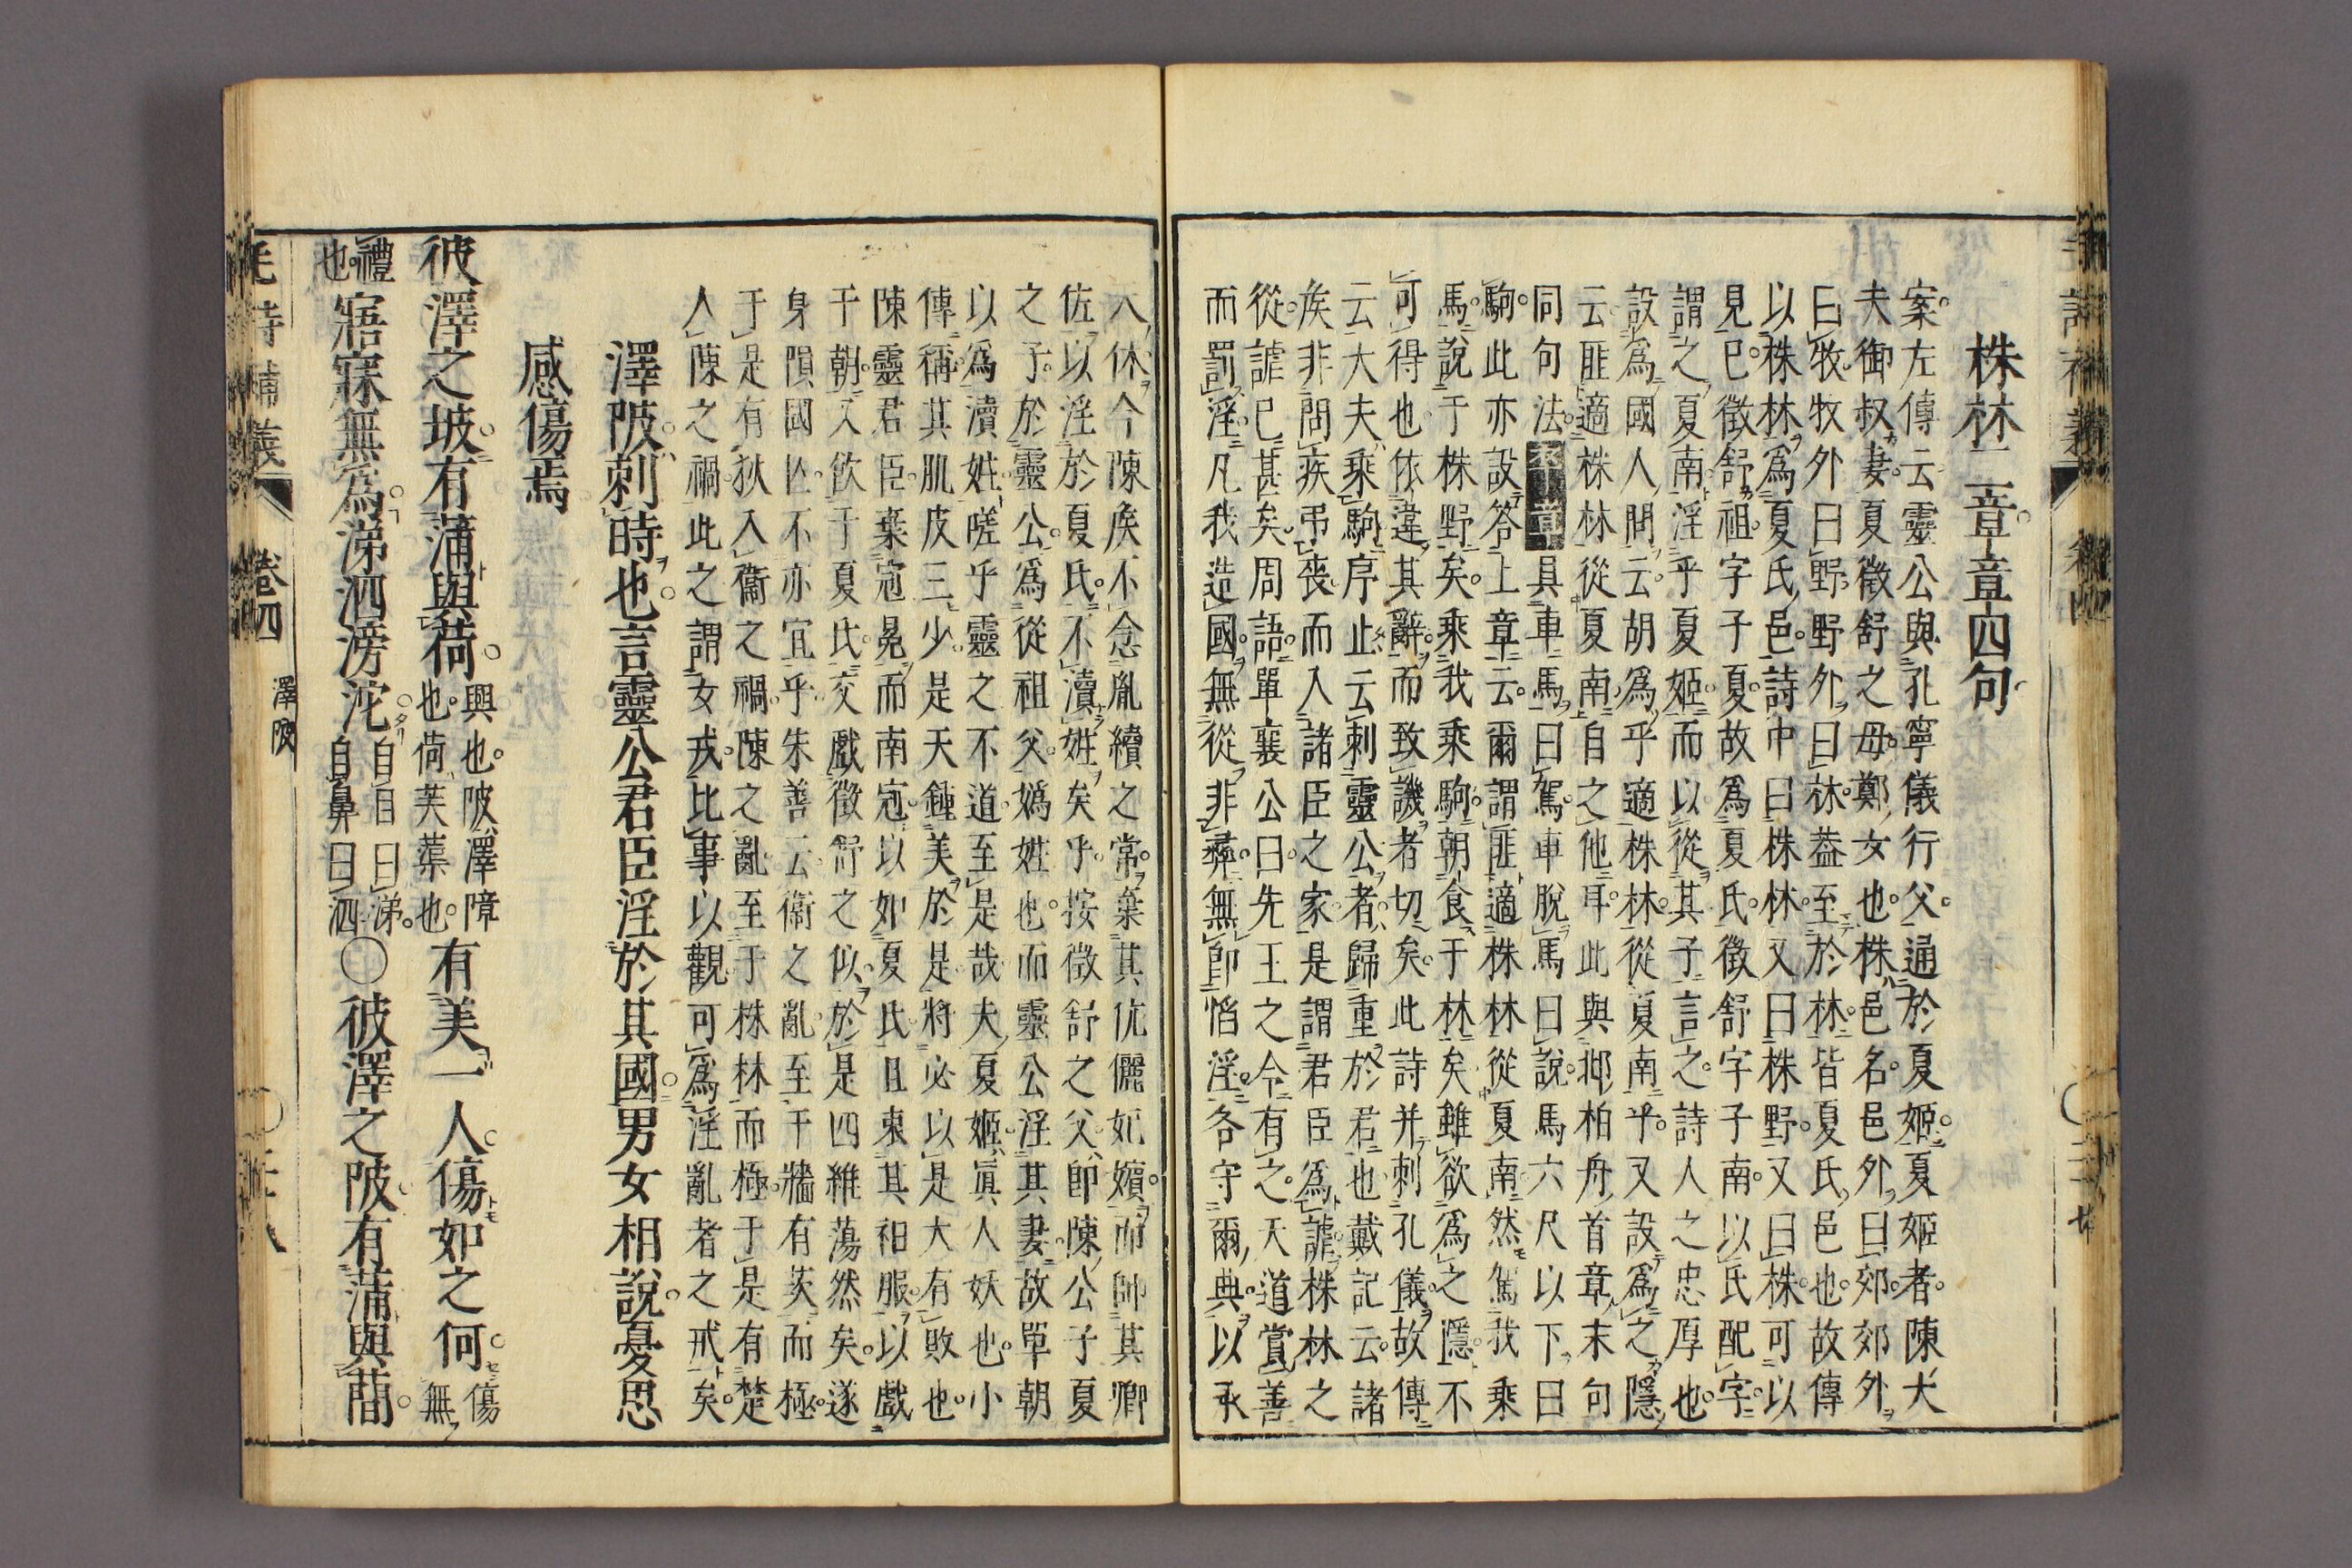 株林二章章四句
案左傳云靈公與孔寧儀行父通於夏姬夏姬者陳大
夫御叔妻夏徵舒之母鄭女也株邑名邑外曰郊郊外
曰牧牧外曰野野外曰林葢至於林皆夏氏邑也故傳
以株林為夏氏邑詩中曰株林又曰株野又曰株可以
見已徵舒祖字子夏故為夏氏徵舒字子南以氏配字
謂之夏南淫乎夏姬而以從其子言之詩人之忠厚也
設為國人問云胡為乎適株林從夏南乎又設為之隱
云匪適株林從夏南自之他耳此與邶柏舟首章末句
同句法具車馬曰駕車脫馬曰說馬六尺以下曰
駒此亦設答上章云爾謂匪適株林從夏南然駕我乘
馬說于株野矣乘我乘駒朝食于林矣雖欲為之隱不
可得也依違其辭而致譏者切矣此詩并刺孔儀故傳
云大夫乘駒序止云刺靈公者歸重於君也戴記云諸
矦非問疾弔喪而入諸臣之家是謂君臣為謔株林之
從謔已甚矣周語單襄公曰先王之令有之天道賞善
而罰淫凡我造國無從非彝無即慆淫各守爾典以承
天休今陳矦不念胤續之常棄其伉儷妃嬪而帥其卿
佐以淫於夏氏不瀆姓矣乎按徵舒之父即陳公子夏
之子於靈公為從祖父媯姓也而靈公淫其妻故單朝
以為瀆姓嗟乎靈之不道至是哉夫夏姬眞人妖也小
傳稱其肌皮三少是天鍾美於是將必以是大有敗也
陳靈君臣棄冠冕而南冠以如夏氏且衷其衵服以戲
于朝又飲于夏氏交戲徵舒之似於是四維蕩然矣遂
身隕國亾不亦宜乎朱善云衞之亂至于牆有茨而極
于是有狄入衞之禍陳之亂至于株林而極于是有楚
人陳之禍此之謂女戎比事以觀可為淫亂者之戒矣
澤陂刺時也言靈公君臣淫於其國男女相說憂思
感傷焉
彼澤之坡有蒲與荷興也陂澤障也荷芙蕖也有美一人傷如之何傷無
禮也寤寐無為涕泗滂沱自目曰涕自鼻曰泗〇彼澤之陂有蒲與蕳
毛詩補義 卷四 澤陂